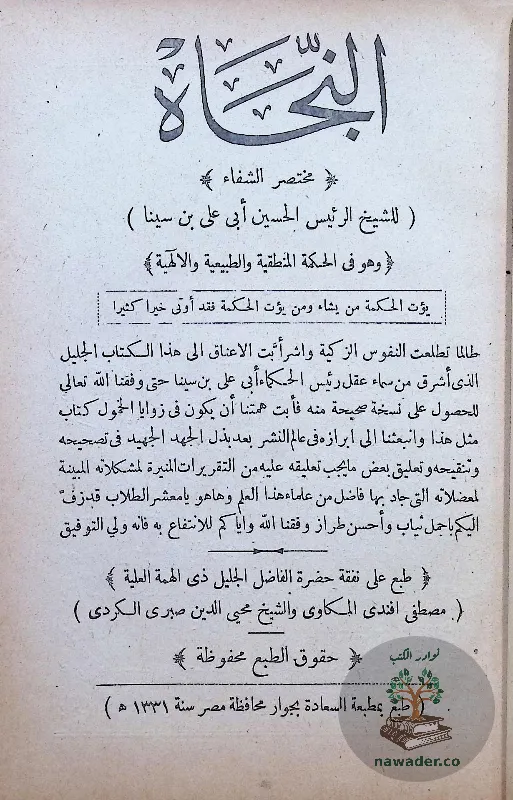 النجاه
﴿ مختصر الشفاء ﴾
( للشيخ الرئيس الحسين أبى على بن سينا )
﴿ وهو فى الحكمة المنطقية والطبيعية والالهية ﴾
يؤت الحكمة من يشاء ومن يؤت الحكمة فقد أوتى خيرا كثيرا
طالما تطلعت النفوس الزكية واشرأبت الاعناق الى هذا الكتاب الجليل
الذى أشرق من سماء عقل رئيس الحكماء أبى على بن سينا حتى وفقنا الله تعالي
للحصول على نسخة صحيحة منه فأبت همتنا أن يكون فى زوايا الخمول كتاب
مثل هذا وانبعثنا الى ابرازه فى عالم النشر بعد بذل الجهد الجهيد فى تصحيحه
وتنقيحه وتعليق بعض مايجب تعليقه عليه من التقريرات المنيرة لمشكلاته المبينة
لمعضلاته التى جاد بها فاضل من علماء هذا العلم وهاهو يامعشر الطلاب قد زف
اليكم باجمل ثياب وأحسن طراز وفقنا الله واياكم للانتفاع به فانه ولي التوفيق
﴿ طبع على نفقة حضرة الفاضل الجليل ذى الهمة العلية ﴾
( مصطفى افندى المكاوى والشيخ محيي الدين صبرى الكردى )
﴿ حقوق الطبع محفوظة ﴾
( طبع بمطبعة السعادة بجوار محافظة مصر سنة ١٣٣١ ه )
نوادر الكتب
nawader.co